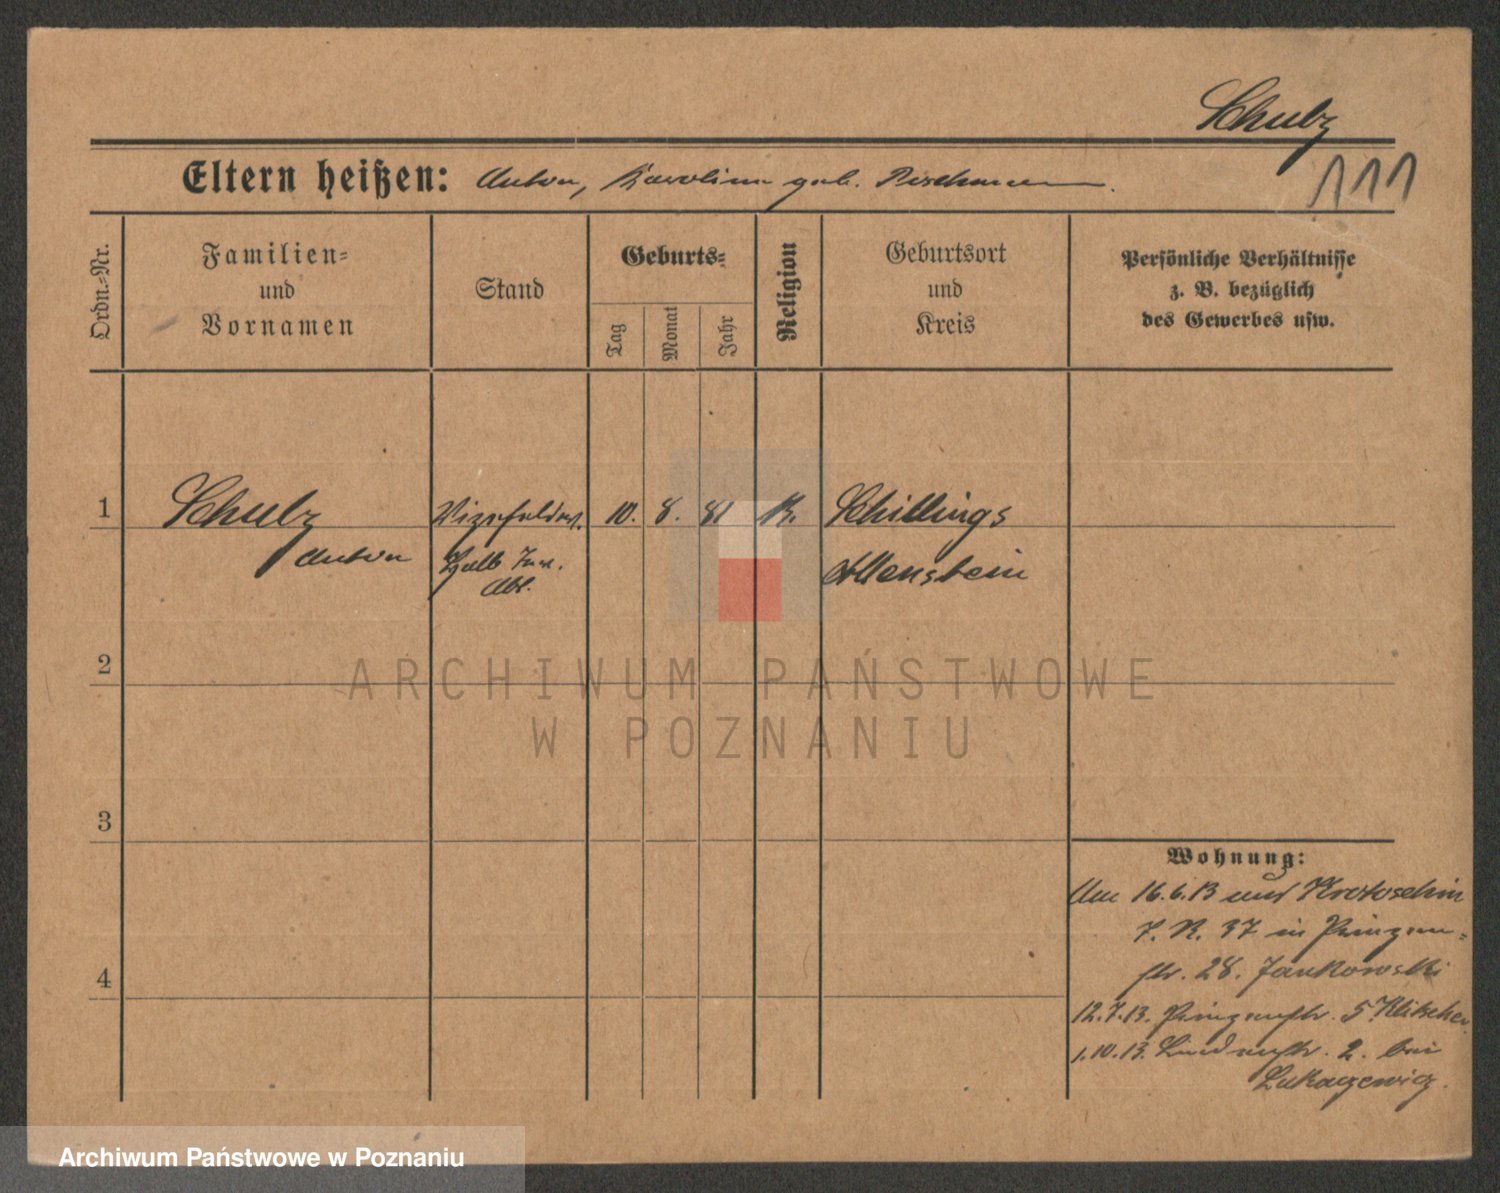 Schulz
111
Eltern heißen: Anton, Karolina geb.
Ordn.-Nr.
Familien-
und
Vornamen
Stand
Geburts-
Tag
Monat
Jahr
Religion
Geburtsort
und
Kreis
Persönliche Verhältnisse
z. B. bezüglich
des Gewerbes usw.
1
Schulz
Anton
Vizefeldw.
10. 8. 81
K.
Schillings
Allenstein
2
3
4
Wohnung:
Am 16.6.13 aus Krotoschin
J. R. 37 in Prinzen-
str. 28. Jankowski
12.7.13. Prinzenstr. 5
1.10.13. Lindenstr. 2. bei
ARCHIWUM PAŃSTWOWE
W POZNANIU
Archiwum Państwowe w Poznaniu